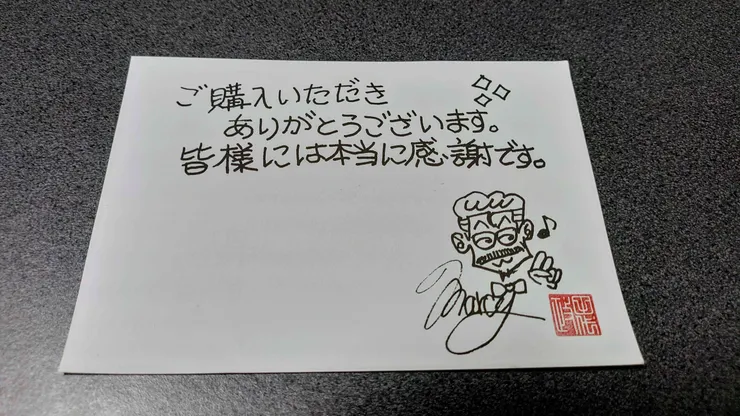 ご購入いただき
ありがとうございます。
皆様には本当に感謝です。